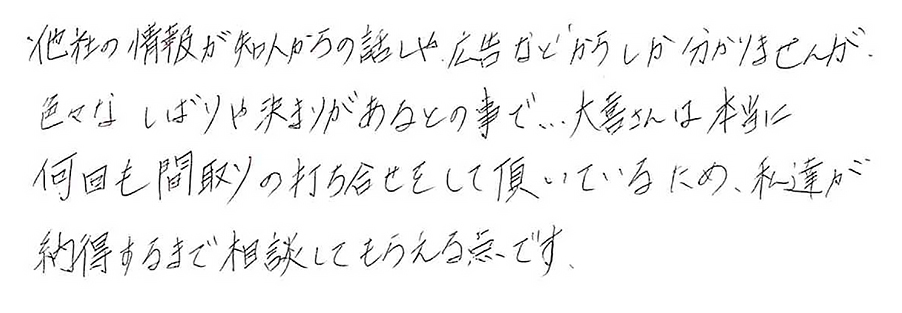 他社の情報が知人からの話しや、広告などからしか分かりませんが、
色々な しばりや決まりがあるとの事で…大喜さんは本当に
何回も間取りの打ち合せをして頂いているため、私達が
納得するまで相談してもらえる点です、